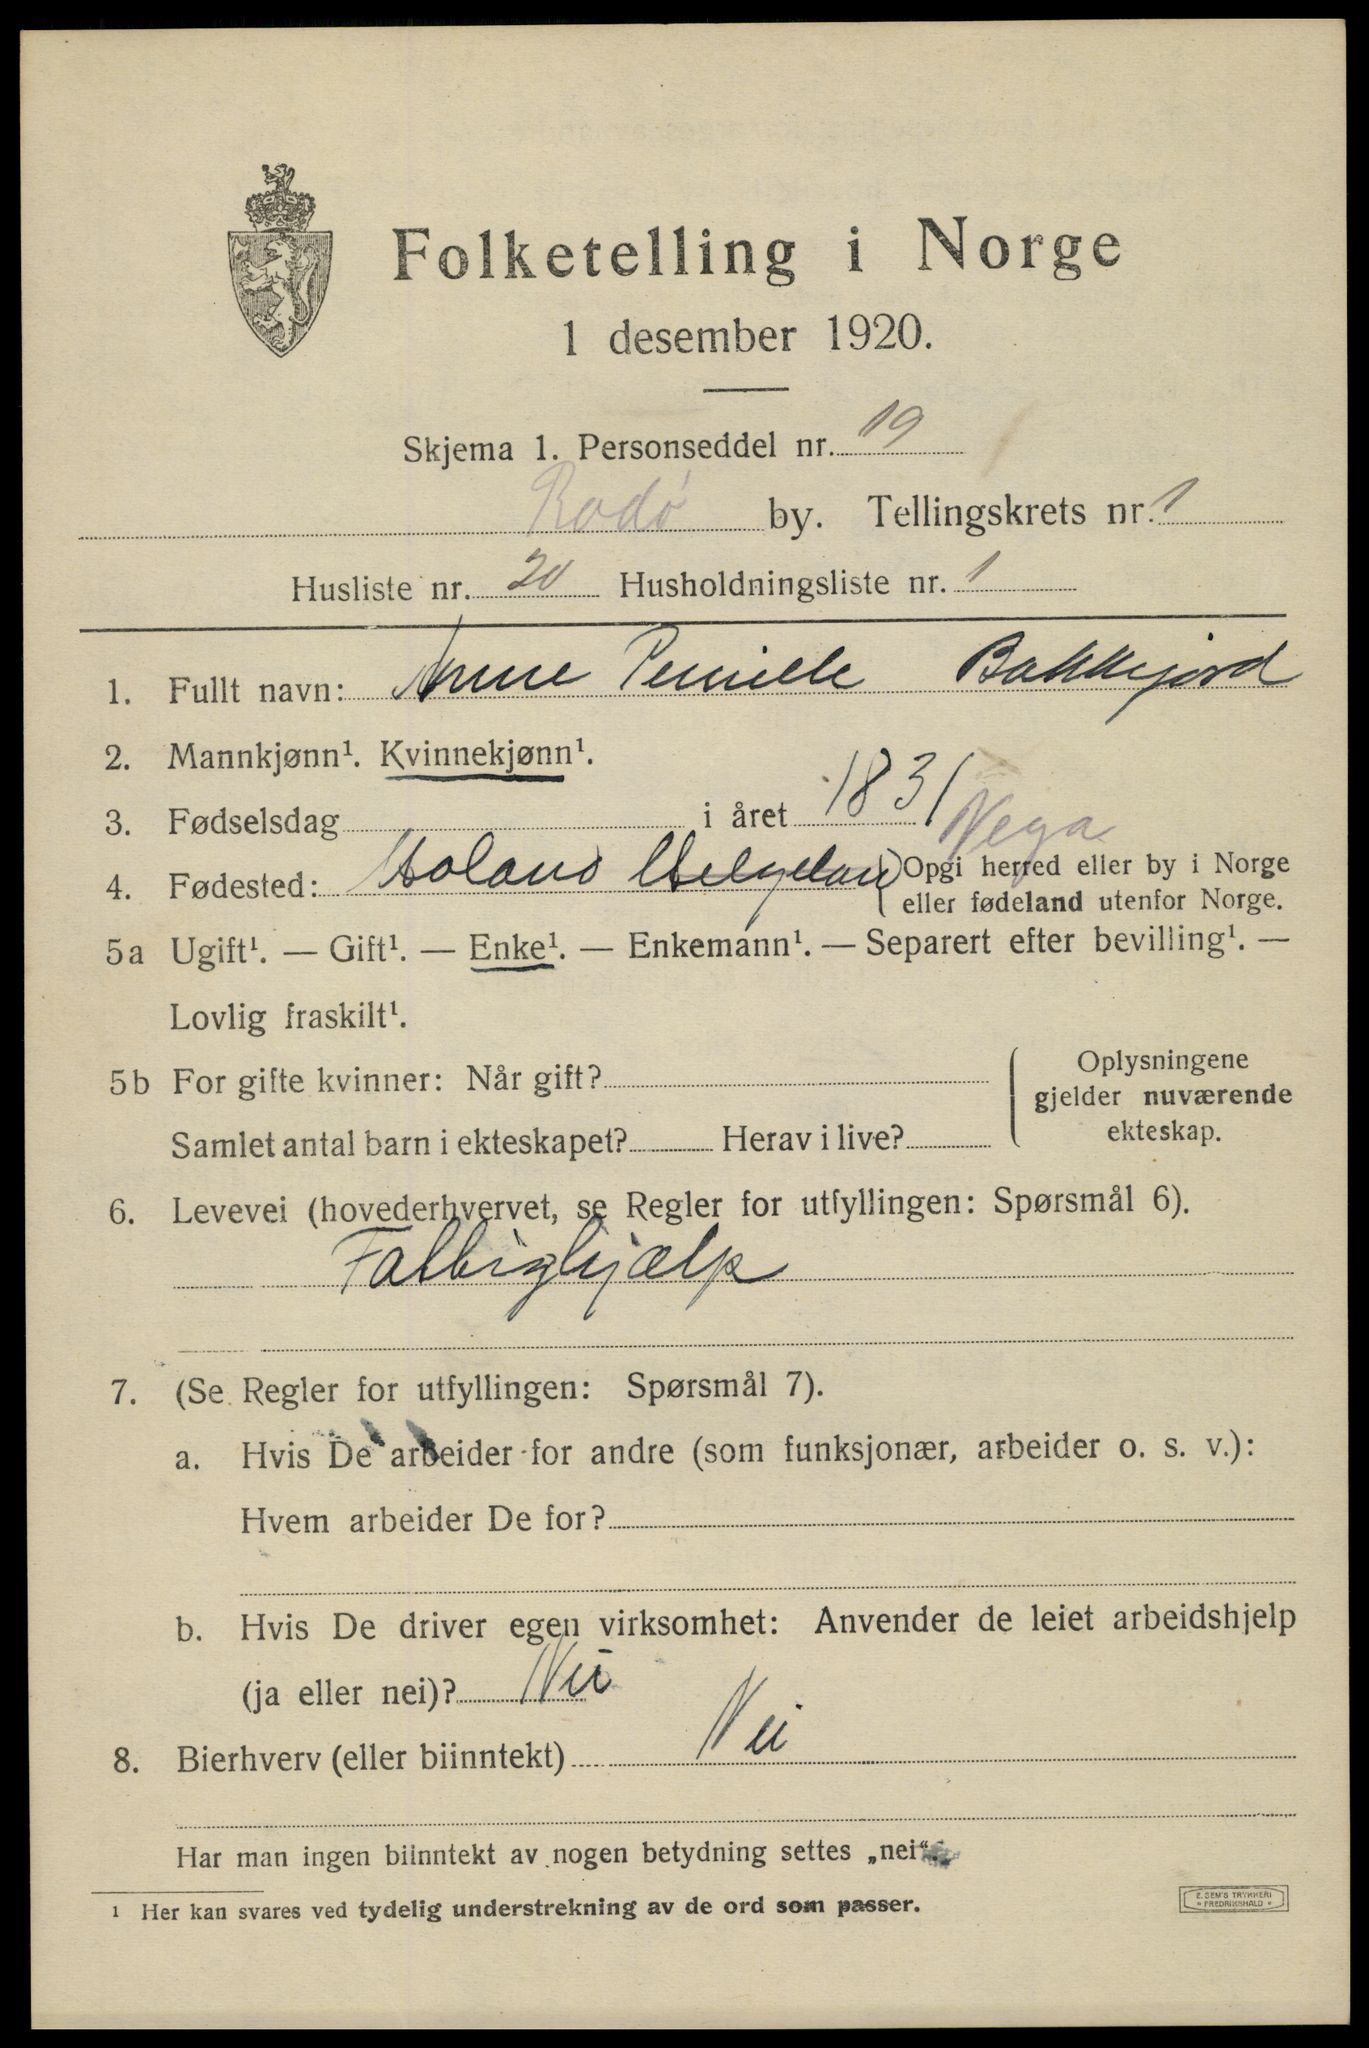 Folketelling i Norge
1 desember 1920.
Skjema 1. Personseddel nr. 19
Bodø by. Tellingskrets nr. 1
Husliste nr. 20 Husholdningsliste nr. 1
1. Fullt navn: Anne Pernille Bakkejord
2. Mannkjønn¹. Kvinnekjønn¹.
3. Fødselsdag i året 1831
Vega
4. Fødested: Helgeland Opgi herred eller by i Norge
eller fødeland utenfor Norge.
5a Ugift¹. — Gift¹. — Enke¹. — Enkemann¹. — Separert efter bevilling¹. —
Lovlig fraskilt¹.
5b For gifte kvinner: Når gift?
Samlet antal barn i ekteskapet? Herav i live?
Oplysningene
gjelder nuværende
ekteskap.
6. Levevei (hovederhvervet, se Regler for utfyllingen: Spørsmål 6).
Fattighjælp
7. (Se Regler for utfyllingen: Spørsmål 7).
a. Hvis De arbeider for andre (som funksjonær, arbeider o. s. v.):
Hvem arbeider De for?
b. Hvis De driver egen virksomhet: Anvender de leiet arbeidshjelp
(ja eller nei)? Nei
8. Bierhverv (eller biinntekt) Nei
Har man ingen biinntekt av nogen betydning settes „nei“.
1 Her kan svares ved tydelig understrekning av de ord som passer.
E. SEM'S TRYKKERI
FREDRIKSHALD